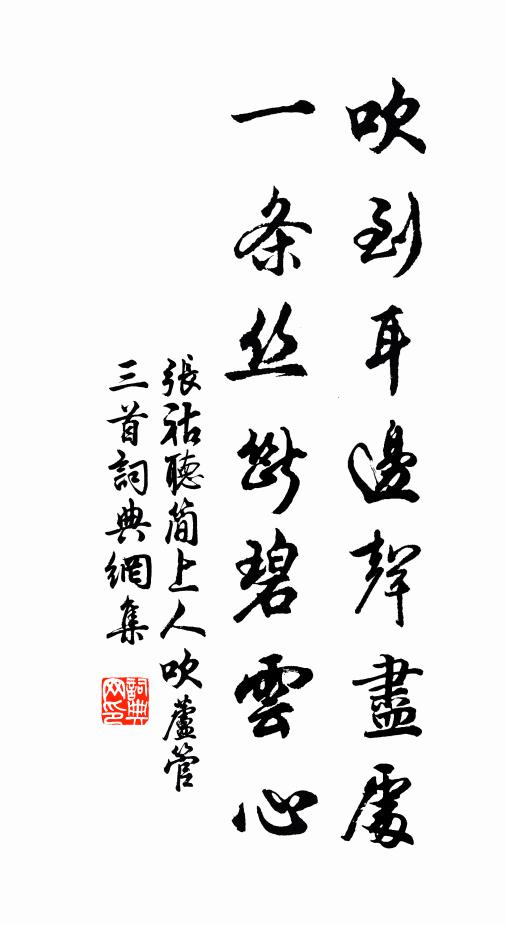 吹到耳邊聲盡處
一条丝斷碧雲心
張祜聽简上人吹蘆管
三首詞典網集
詞典
网印